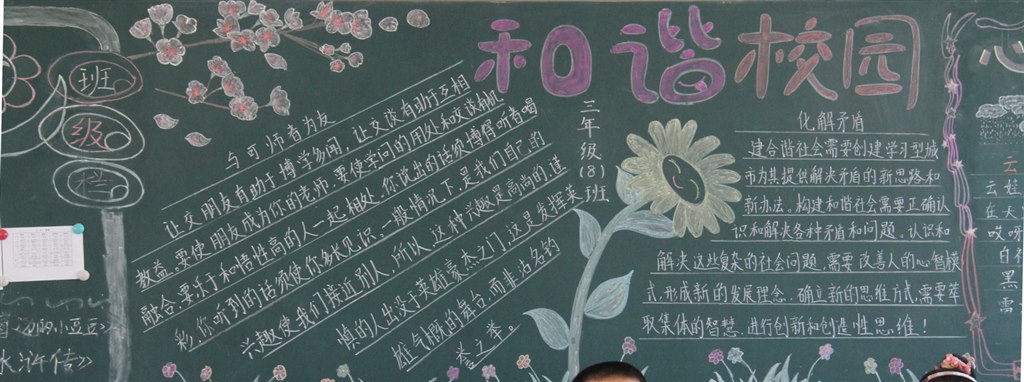 班
级
栏
和谐校园
三年级(8)班
与可师者为友
让交朋友有助于博学多闻,让交谈有助于互相
教益。要使朋友成为你的老师,要使学问的用处和交谈融
融合。要乐于和悟性高的人一起相处。你说出的话须博得听者喝
彩,你听到的话须使你多长见识。一般情况下,是我们自己的
兴趣使我们接近别人,所以,这种兴趣是高尚的。谨
慎的人出没于英雄豪杰之门,这是发挥英
雄气概的舞台,而非沽名钓
誉之举。
化解矛盾
建合谐社会需要创建学习型城
市为其提供解决矛盾的新思路和
新办法。构建和谐社会需要正确认
识和解决各种矛盾和问题。认识和
解决这些复杂的社会问题,需要改善人的心智模
式,形成新的发展理念,确立新的思维方式,需要萃
取集体的智慧,进行创新和创造性思维!
心
云
云娃
在大
哎呀
白衤
黑
需
的小豆豆》
水浒传》